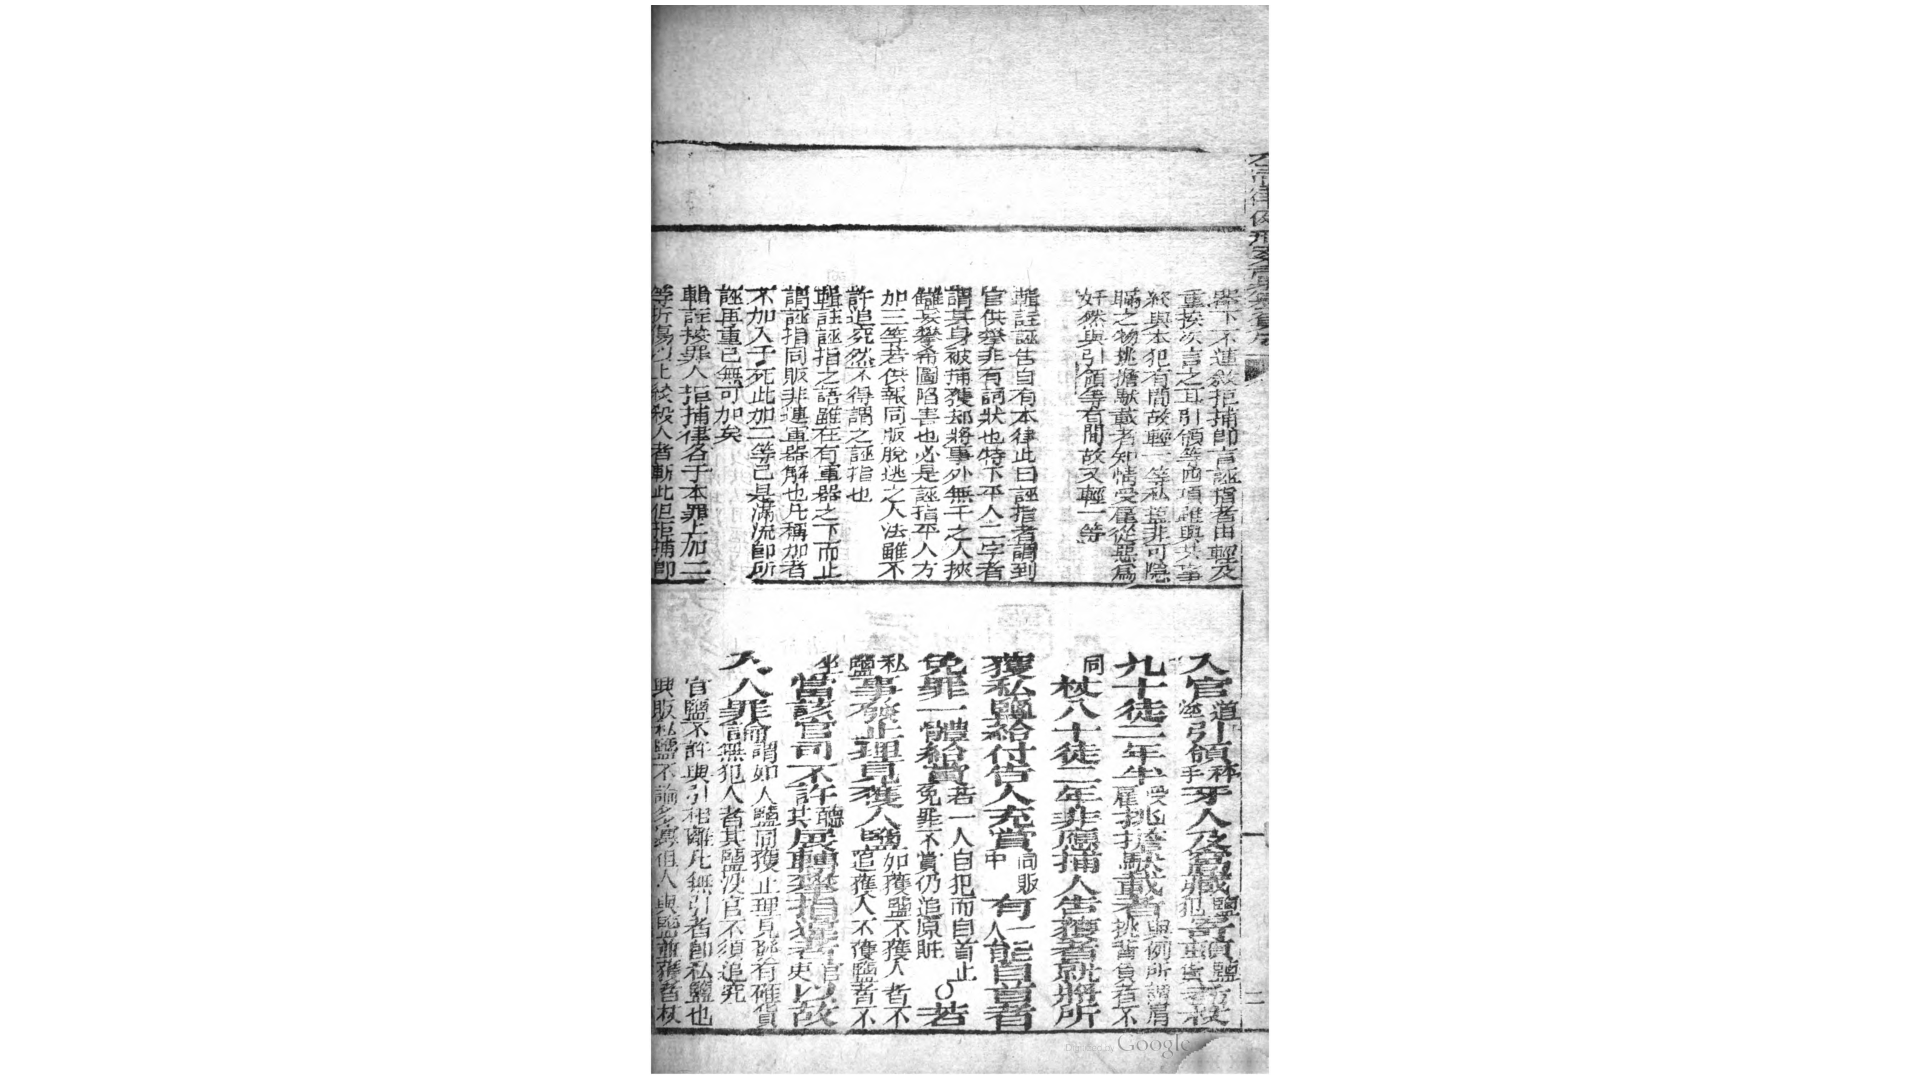 器下不進敘拒捕即言誣指者由輕及
重挨次言之耳引領等四項雖與其事
終與本犯有間故輕一等私鹽非可隱
瞞之物挑擔馱載者知情受雇從惡為
奸然與引領等有間故又輕一等
輯註誣告自有本律此曰誣指者謂到
官供攀非有詞狀也特下平人二字者
謂其身被捕獲却將事外無干之人挾
讎妄攀希圖陷害也必是誣指平人方
加三等若供報同販脫逃之人法雖不
許追究然不得謂之誣指也
輯註誣指之語雖在有軍器之下而止
謂誣指同販非連軍器解也凡稱加者
不加入于死此加三等已是滿流即所
誣再重已無可加矣
輯註按罪人拒捕律各于本罪上加二
等折傷以上絞殺人者斬此但拒捕即
入官道塗引領秤手牙人及窩藏鹽犯寄頓鹽貨者杖
九十徒二年半受雇挑擔馱載者與例所謂肩挑背負者不
同杖八十徒二年非應捕人告獲者就將所
獲私鹽給付告人充賞同販中有一人能自首者
免罪一體給賞若一人自犯而自首止免罪不賞仍追原贓○若
私鹽事發止理見獲人鹽如獲鹽不獲人者不追獲人不獲鹽者不
坐當該官司不許聽其展轉攀指違者官吏以故
入人罪論謂如人鹽同獲止理見發有確貨無犯人者其鹽沒官不須追究
官鹽不許與引相離凡無引者即私鹽也
興販私鹽不論多寡但人與鹽並獲者杖
二
Digitized by Google